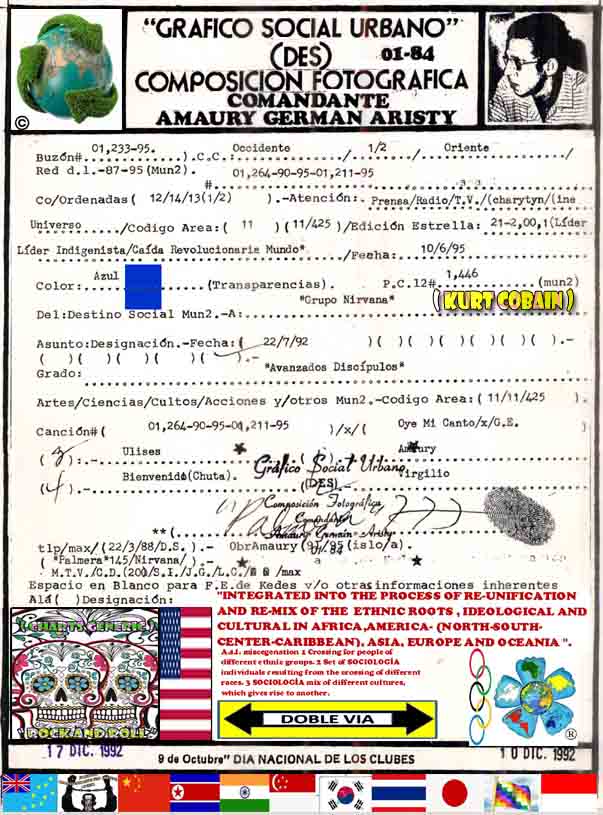 "GRAFICO SOCIAL URBANO"
(DES) 01-84
COMPOSICION FOTOGRAFICA
COMANDANTE
AMAURY GERMAN ARISTY
©
01,233-95. Occidente 1/2 Oriente
Buzón#..................).C.C:......................................./
Red d.l.-87-95(Mun2). 01,264-90-95-01,211-95
#
Co/Ordenadas( 12/14/13(1/2) ).-Atención:- Prensa/Radio/T.V./(charytyn/(ine
Universo /Codigo Area:( 11 )(11/425)/Edición Estrella: 21-2,00,1(Líder
Líder Indigenista/Caída Revolucionaria Mundo" /Fecha: 10/6/95
Azul 1,446
Color: (Transparencias). P.C.12#. (mun2)
"Grupo Nirvana" ( KURT COBAIN )
Del:Destino Social Mun2.-A:
Asunto:Designación.-Fecha:( 22/7/92 )( )( )( )( )( )( ).-
( )( )( )( )( )( ).-
"Avanzados Discípulos"
Grado:
Artes/Ciencias/Cultos/Acciones y/otros Mun2.-Codigo Area:( 11/11/425 ).
01,264-90-95-01,211-95 Oye Mi Canto/x/G.E.
Canción#( )/x/( )
Ulises Amaury
( 3 ):.-
Gráfico Social Urbano
Bienvenido(Chuta). (DES) Virgilio
( 4 ).-
Composición Fotográfica
Comandante
**( Amaury Germán Aristy
01-84
tlp/max/(22/3/88/D.S.).- ObrAmaury(97/95(islo/a).
( "Palmera"145/Nirvana/).-
M.T.V./C.D.(200/S.I./J.G./L.C./ /max
Espacio en Blanco para F.E.de Redes y/o otras informaciones inherentes
Alá( )Designación:
"INTEGRATED INTO THE PROCESS OF RE-UNIFICATION
AND RE-MIX OF THE ETHNIC ROOTS , IDEOLOGICAL AND
CULTURAL IN AFRICA,AMERICA- (NORTH-SOUTH-
CENTER-CARIBBEAN), ASIA, EUROPE AND OCEANIA ".
A.d.I. miscegenation 1 Crossing for people of
different ethnic groups. 2 Set of SOCIOLOGÍA
individuals resulting from the crossing of different
races. 3 SOCIOLOGÍA mix of different cultures,
which gives rise to another.
ROCK AND ROLL
DOBLE VIA
®
17 DIC. 1992
10 DIC. 1992
9 de Octubre" DIA NACIONAL DE LOS CLUBES